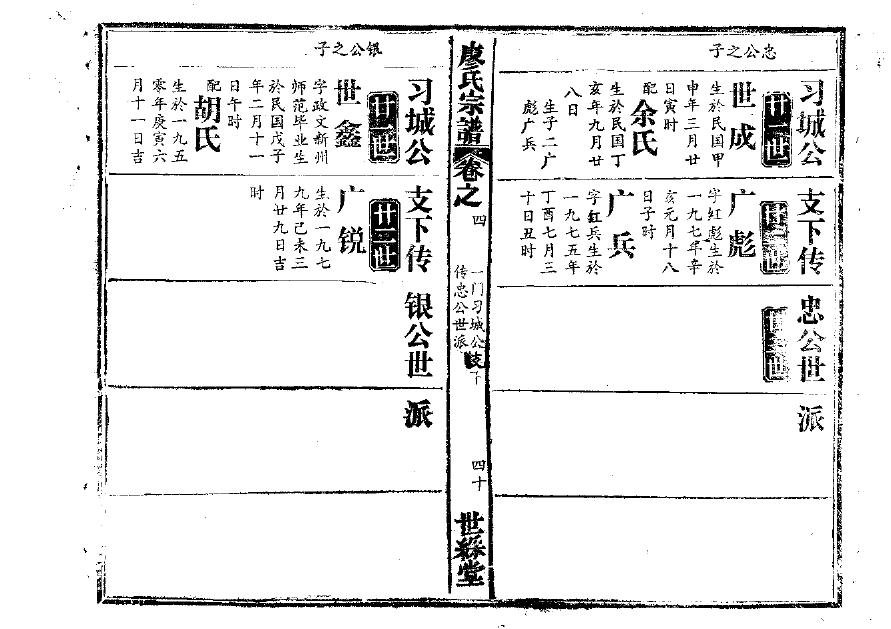 忠公之子
习城公
支下传
忠公世
派
廿一世
世成
生於民国甲
申年三月廿
日寅时
配余氏
生於民国丁
亥年九月廿
八日
生子二广
彪广兵
廿二世
广彪
字红彪生於
一九七年辛
亥元月十八
日子时
广兵
字红兵生於
一九七五年
丁酉七月三
十日丑时
廖氏宗譜
卷之四
一门习城公支下
传忠公世派
四十
世綵堂
银公之子
习城公
支下传
银公世
派
廿一世
世鑫
字政文新州
师范毕业生
於民国戊子
年二月十一
日午时
配胡氏
生於一九五
零年庚寅六
月十一日吉
廿二世
广锐
生於一九七
九年己未三
月廿九日吉
时